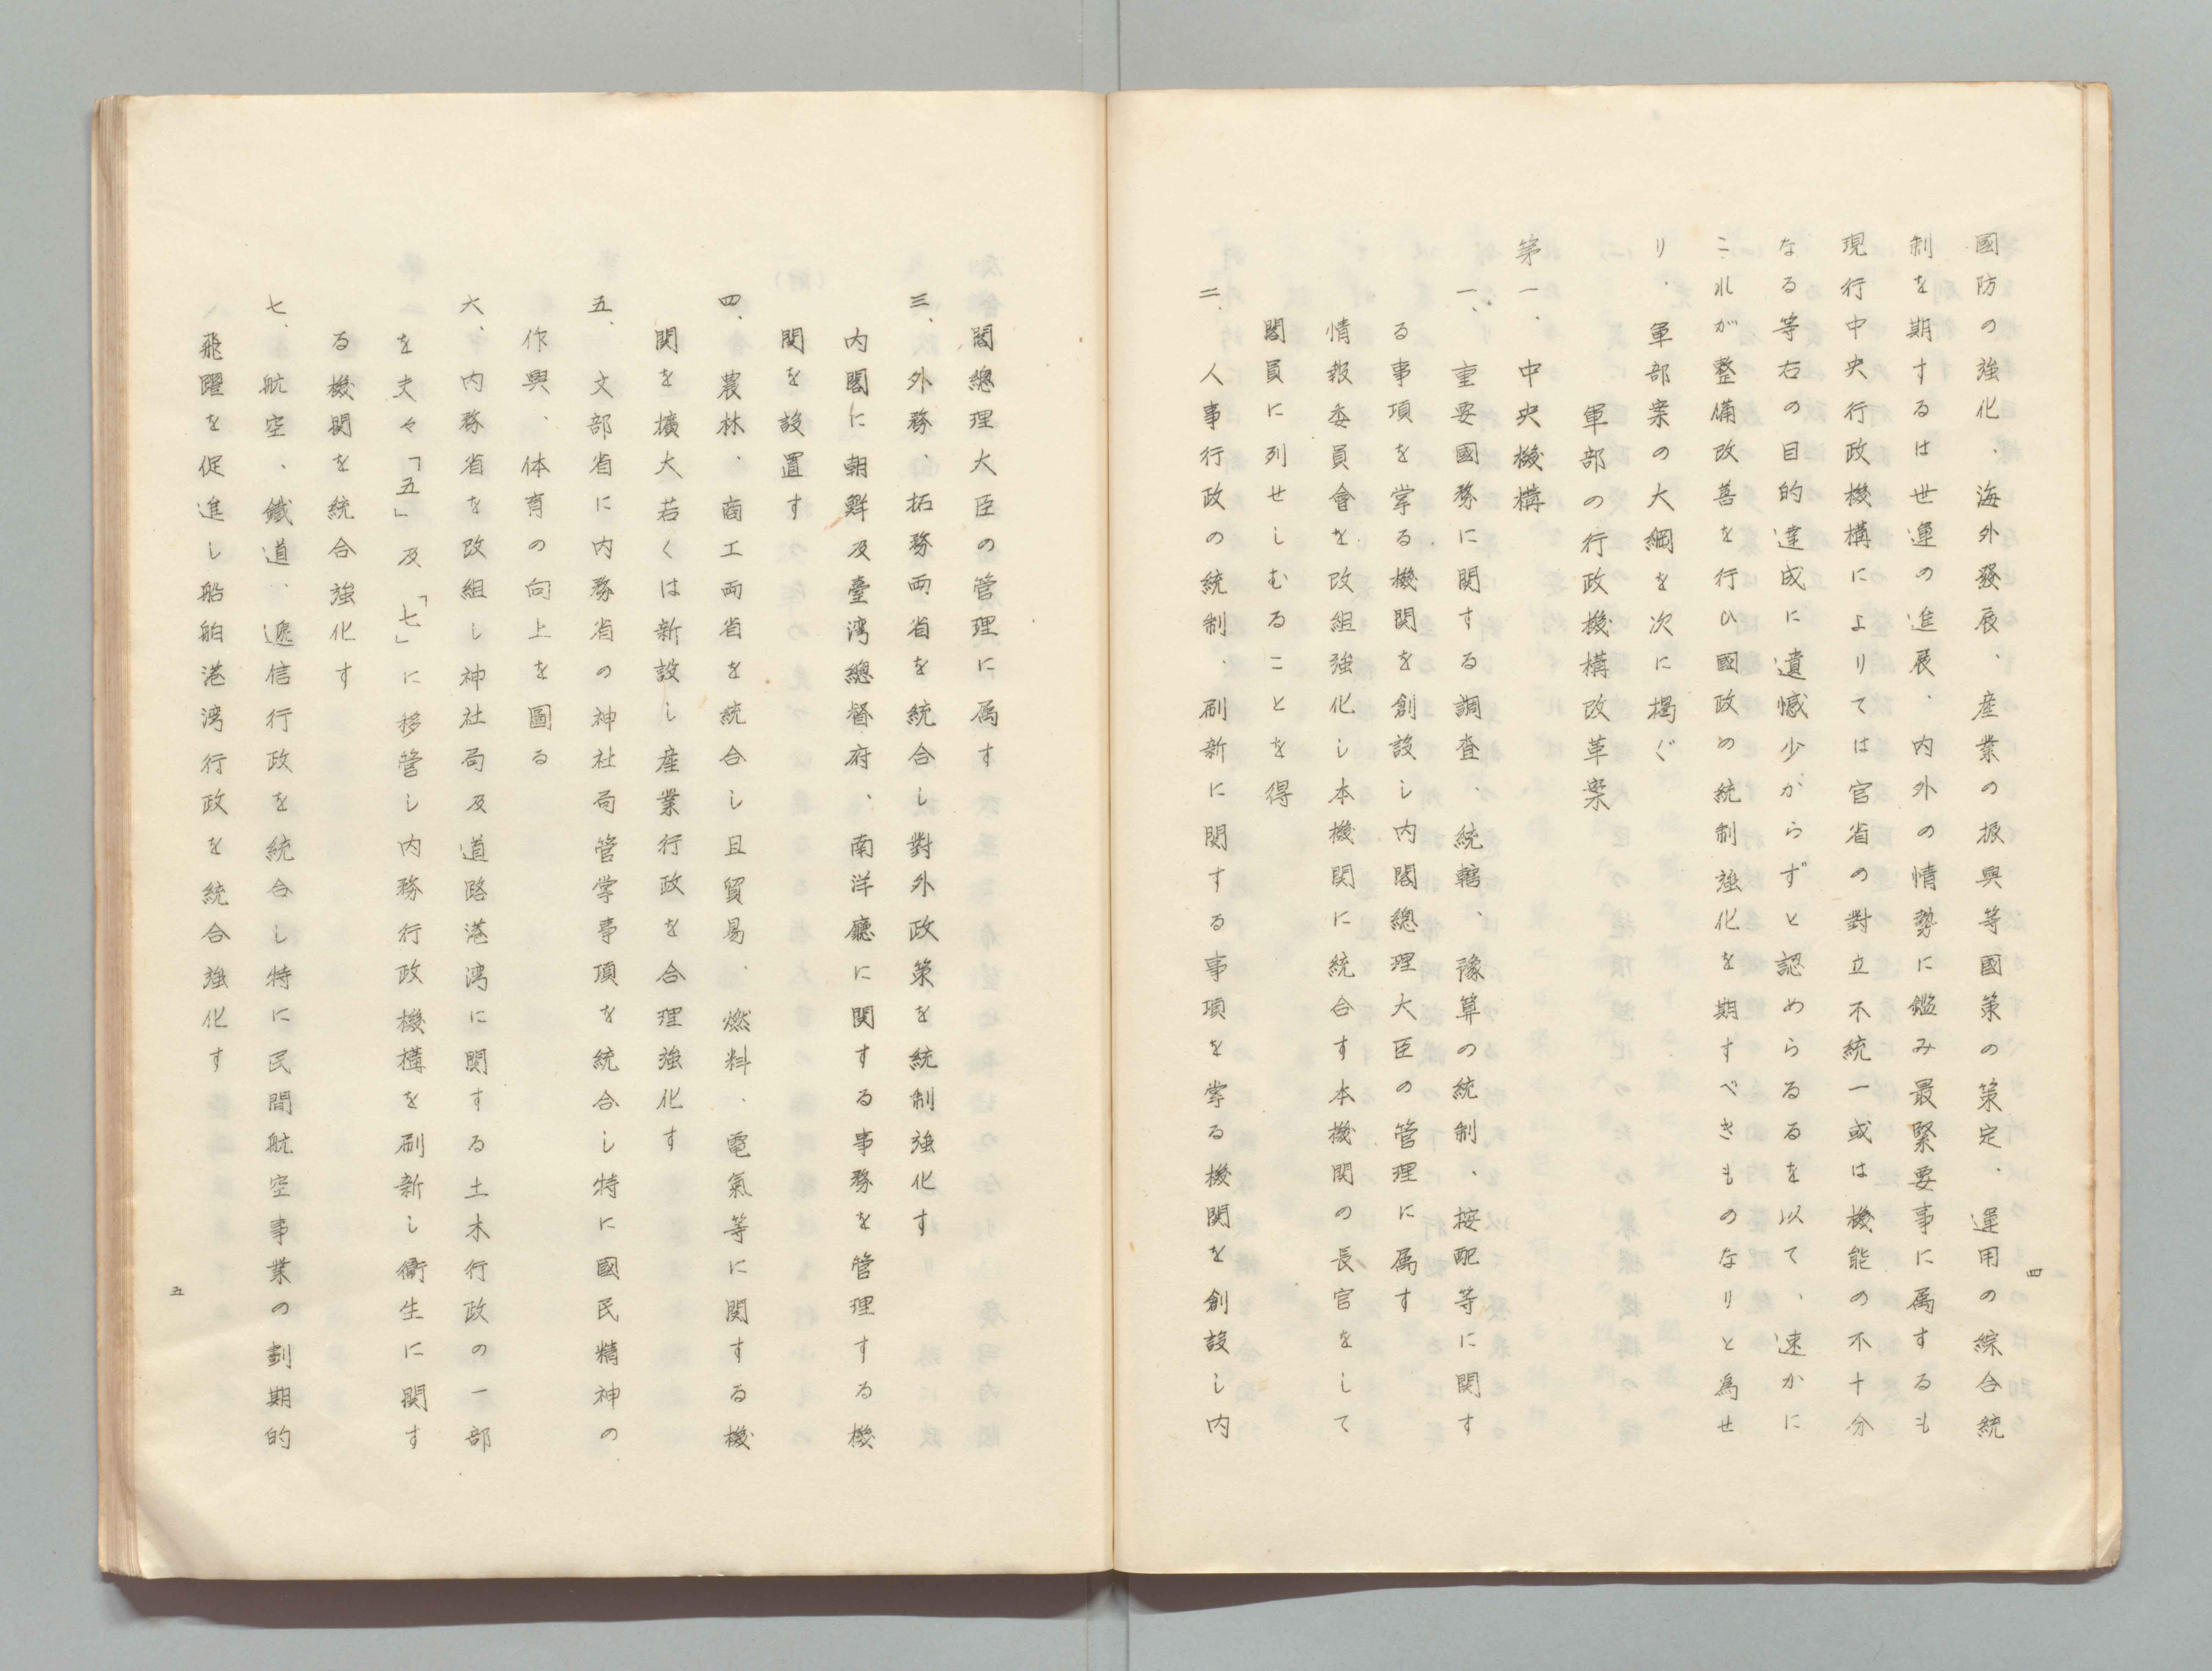 國防の強化、海外發展、産業の振興等國策の策定、運用の綜合統
制を期するは世運の進展、内外の情勢に鑑み最緊要事に属するも
現行中央行政機構によりては官省の對立不統一或は機能の不十分
なる等右の目的達成に遺憾少からずと認めらるるを以て、速かに
これが整備改善を行ひ國政の統制強化を期すべきものなりと為せ
り、軍部案の大綱を次に掲ぐ
軍部の行政機構改革案
第一、中央機構
一、重要國務に関する調査、統轄、豫算の統制、按配等に関す
る事項を掌る機関を創設し内閣總理大臣の管理に属す
情報委員會を改組強化し本機関に統合す本機関の長官をして
閣員に列せしむることを得
二、人事行政の統制、刷新に関する事項を掌る機関を創設し内
四
閣總理大臣の管理に属す
三、外務、拓務両省を統合し對外政策を統制強化す
内閣に朝鮮及臺湾總督府、南洋廳に関する事務を管理する機
関を設置す
四、農林、商工両省を統合し且貿易、燃料、電氣等に関する機
関を擴大若くは新設し産業行政を合理強化す
五、文部省に内務省の神社局管掌事項を統合し特に國民精神の
作興、体育の向上を圖る
六、内務省を改組し神社局及道路港湾に関する土木行政の一部
を夫々「五」及「七」に移管し内務行政機構を刷新し衛生に関す
る機関を統合強化す
七、航空、鐵道、遞信行政を統合し特に民間航空事業の劃期的
飛躍を促進し船舶港湾行政を統合強化す
五